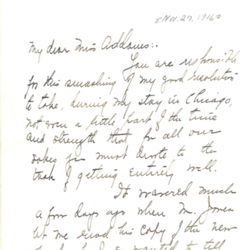 [Nov. 27, 1916]
My dear Miss Addams:
You are responsible
for this smashing of my good resolution
to take, during my stay in Chicago,
not even a little bit of the time
and strength that for all our
sakes you must devote to the
task of getting entirely well.
It wavered much
a few days ago when Mr. Jones
let me read his copy of the new